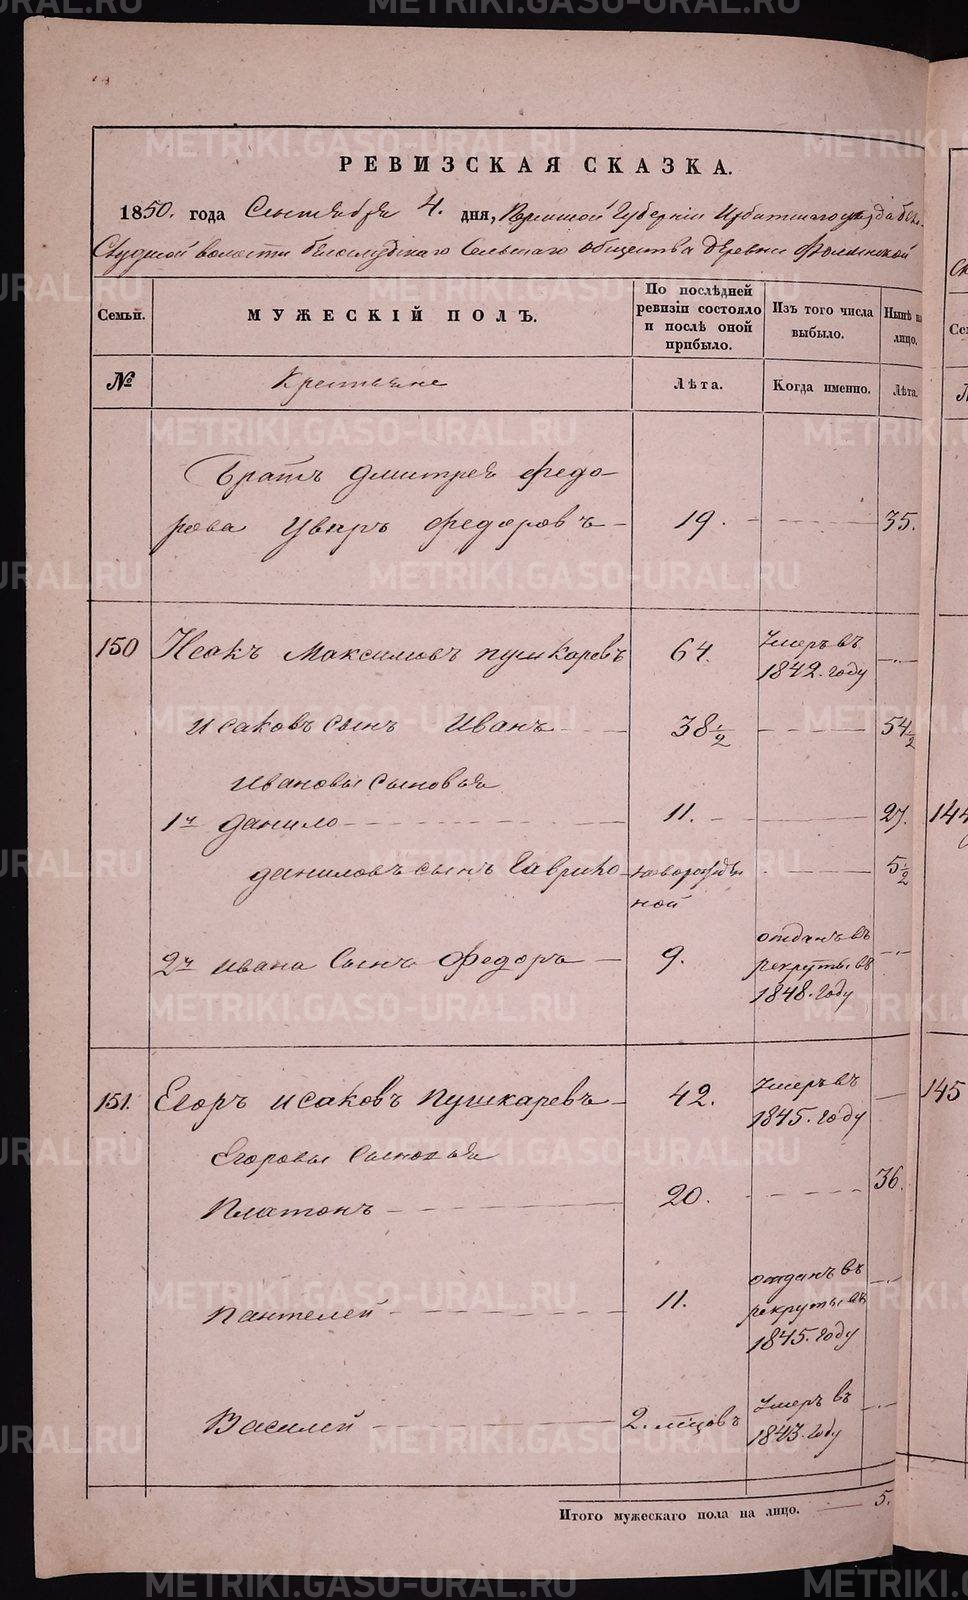 РЕВИЗСКАЯ СКАЗКА.
1850. года Сентября 4. дня, Пермской Губернiи Ирбитскаго уезда бело
Слудской волости белослудскаго Сельскаго общества деревни Фоминской
Семьи.
МУЖЕСКIЙ ПОЛЪ.
По послѣдней ревизiи состояло и послѣ оной прибыло.
Изъ того числа выбыло.
Нынѣ на лицо.
№
Крестьяне
Лѣта.
Когда именно.
Лѣта.
братъ дмитрея федо-
рова Уваръ федоровъ 19. 35.
150 Исакъ Максимовъ пушкаревъ 64. Умеръ въ 1842. году
исаковъ сынъ Иванъ 38 1/2 54 1/2
ивановы сыновья
1й данило 11. 27.
даниловъ сынъ Гаврило новорожден ной 5 1/2
2й ивана сынъ Федоръ 9. отданъ въ рекруты въ 1848. году
151. Егоръ исаковъ пушкаревъ 42. Умеръ въ 1845. году
Егоровы сыновья
Платонъ 20. 36.
Пантелей 11. отданъ въ рекруты въ 1845. году
Василей 2. мѣсцовъ Умеръ въ 1843. году
Итого мужескаго пола на лицо. 5.
144
145
METRIKI.GASO-URAL.RU